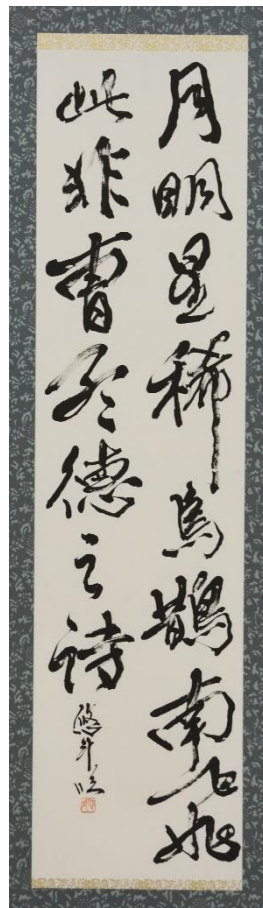 月明星稀烏鵲南飛
此非曹孟德之詩